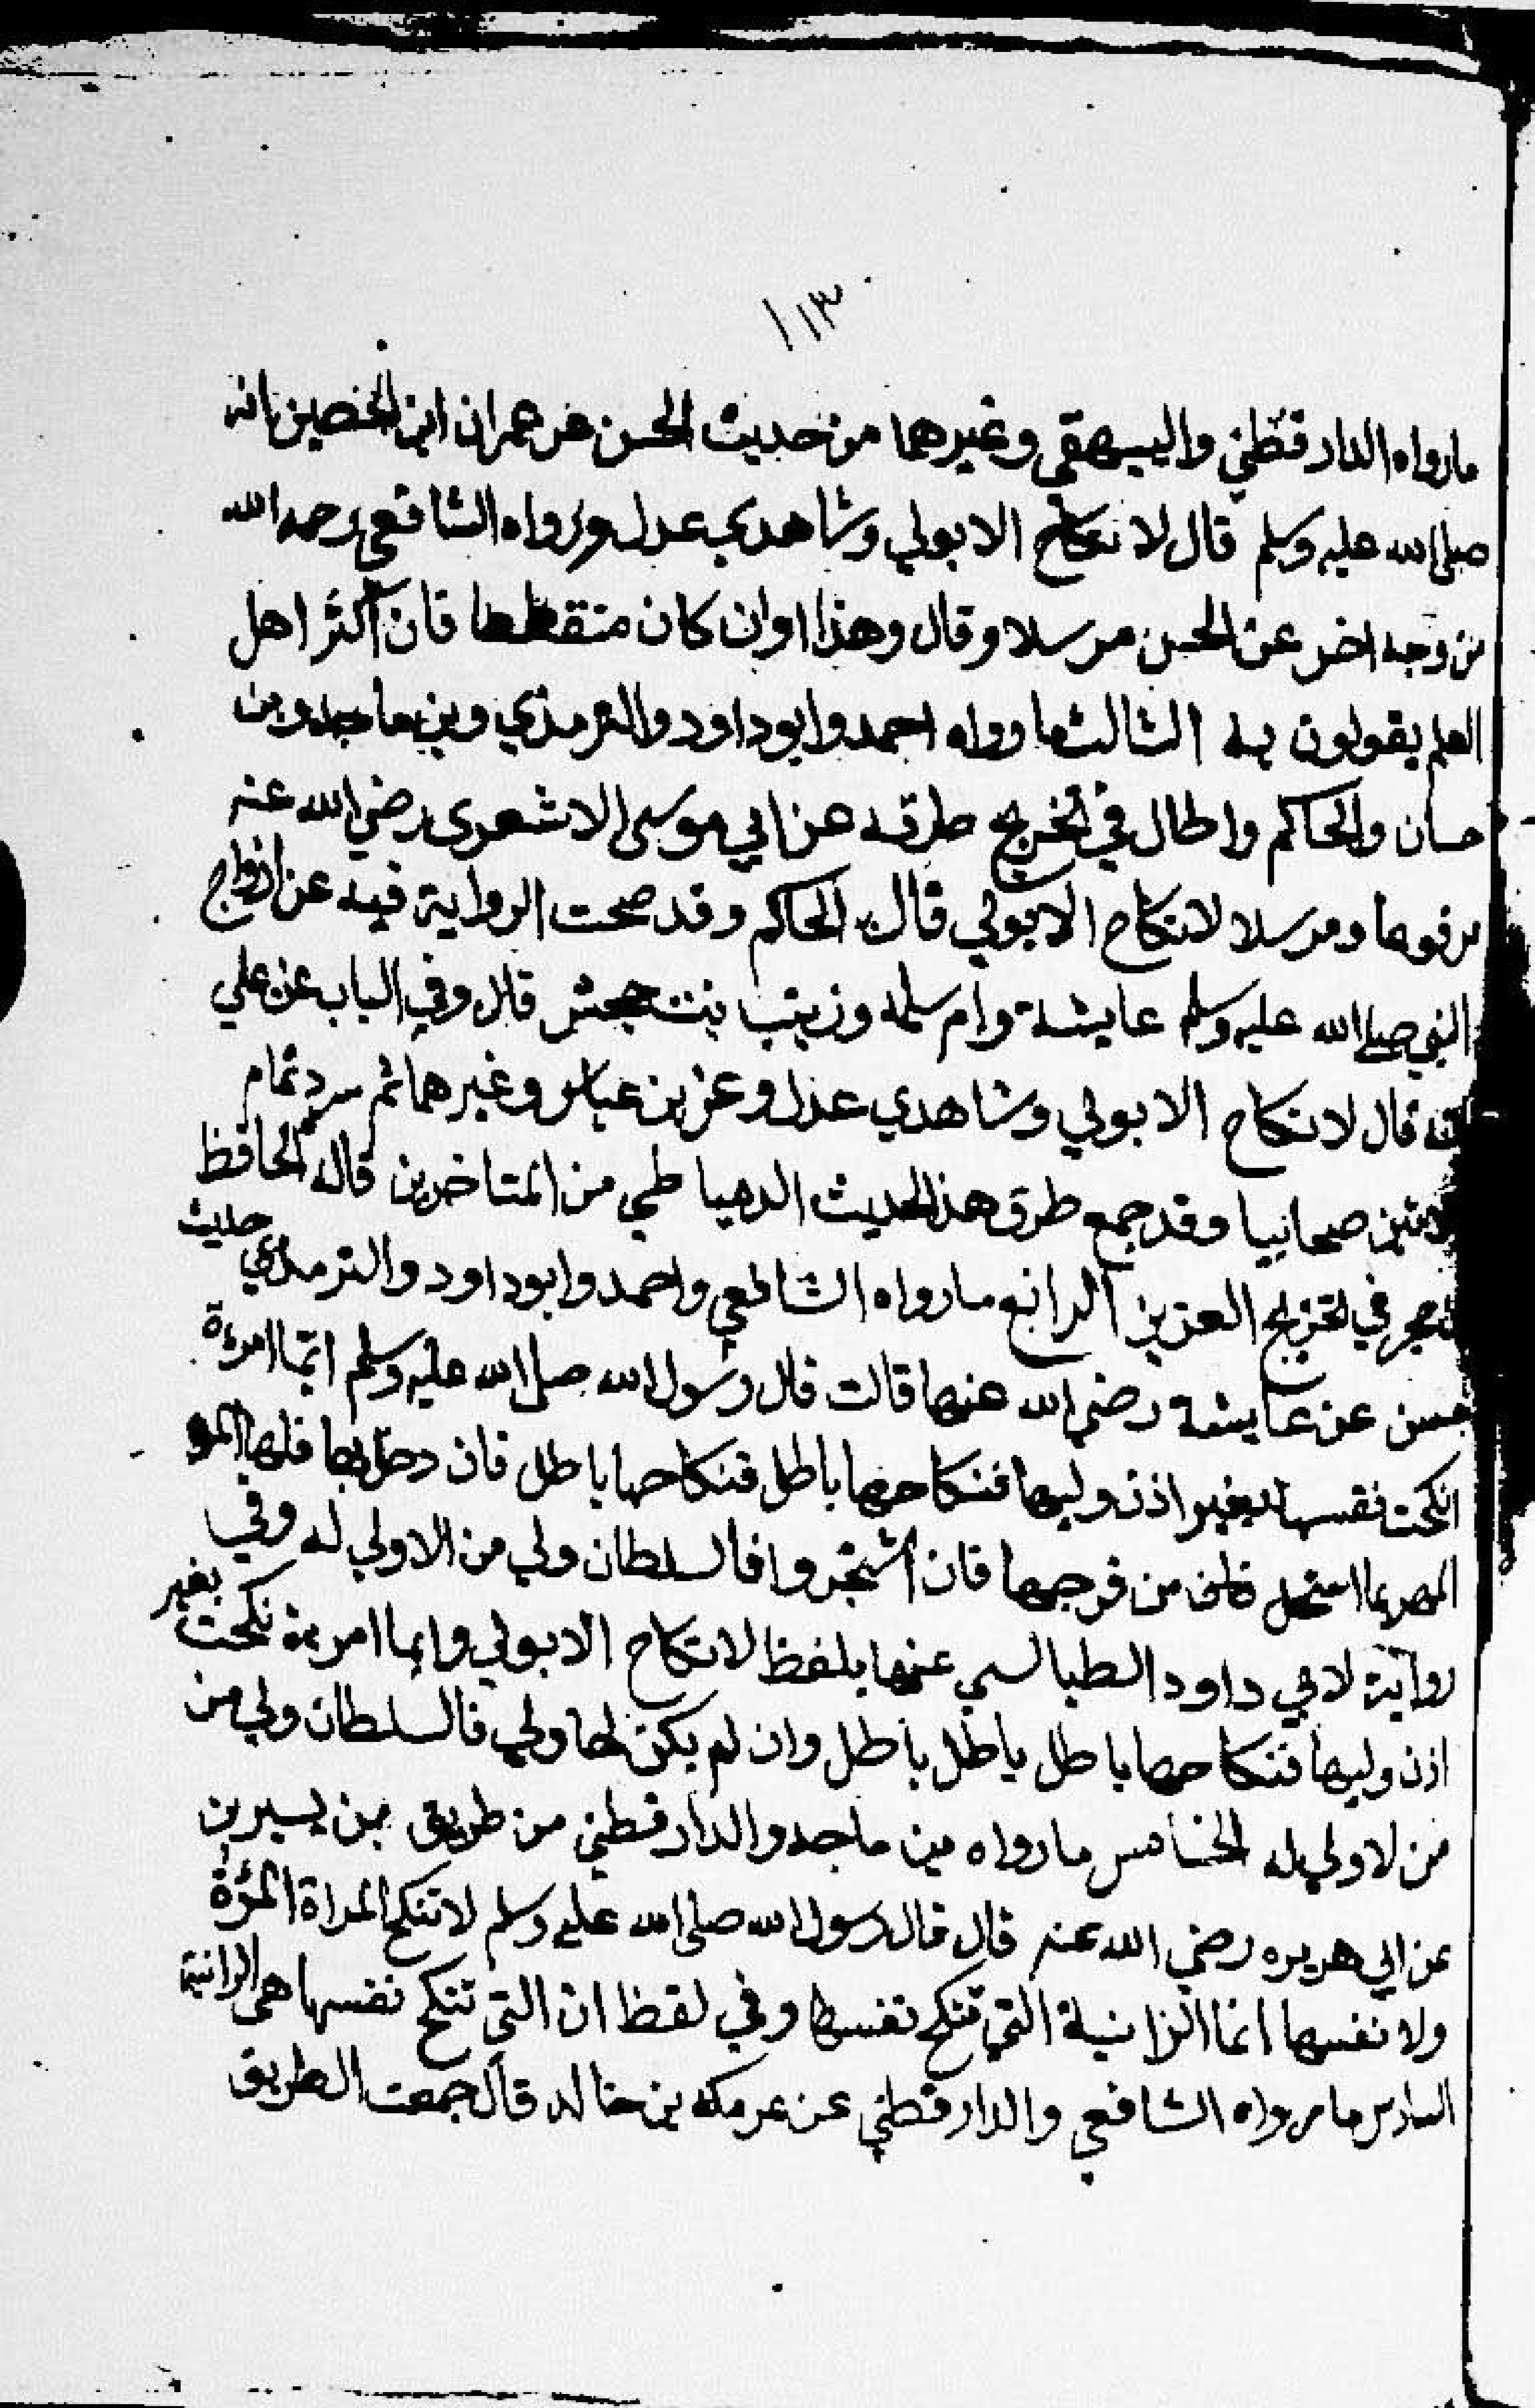 ١١٣
مارواه الدارقطني والبيهقي وغيرهما من حديث الحسن عن عمران ابن الحصين انه
صلى الله عليه وسلم قال لا نكاح الا بولي وشاهدي عدل ورواه الشافعي رحمه الله
من وجه اخر عن الحسن مرسلا وقال وهذا اوان كان منقطعا فان اكثر اهل
العلم يقولون به الثالث ما رواه احمد وابوداود والترمذي وبن ماجه وبن
حسان والحاكم واطال في تخريج طرقه عن ابي موسى الاشعرى رضي الله عنه
مرفوعا ومرسلا لا نكاح الا بولي قال الحاكم وقد صحت الرواية فيه عن ازواج
النبي صلى الله عليه وسلم عايشة وام سلمه وزينب بنت جحش قال وفي الباب عن علي
انه قال لا نكاح الا بولي وشاهدي عدل وعن بن عباس وغيرهما ثم سرد تمام
صحابيا وقد جمع طرق هذا الحديث الدمياطي من المتاخرين قاله الحافظ
حجر في تخريج العزيز الرابع مارواه الشافعي واحمد وابوداود والترمذي حديث
حسن عن عايشة رضي الله عنها قالت قال رسول الله صلى الله عليه وسلم ايما امرءة
انكحت نفسها بغير اذن وليها فنكاحها باطل فنكاحها باطل فان دخل بها فلها المهر
المهر بما استحل من فرجها فان اشتجروا فالسلطان ولي من الاولي له وفي
رواية لابي داود الطيالسي عنها بلفظ لا نكاح الا بولي وايما امرءة نكحت بغير
اذن وليها فنكاحها باطل باطل باطل وان لم يكن لها ولي فالسلطان ولي من
من لاولي له الخامس مارواه بن ماجه والدارقطني من طريق بن يسيرين
عن ابي هريره رضي الله عنه قال قال رسول الله صلى الله عليه وسلم لا تنكح المراة المرؤة
ولا نفسها انما الزانية التي تنكح نفسها وفي لفظ ان التي تنكح نفسها هى الزانية
السادس مارواه الشافعي والدارقطني عن عرمكه بن خالد قال جمعت الطريق